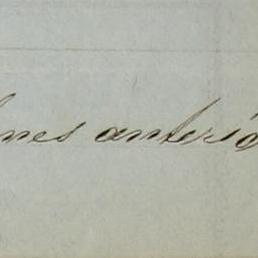 nes anterio